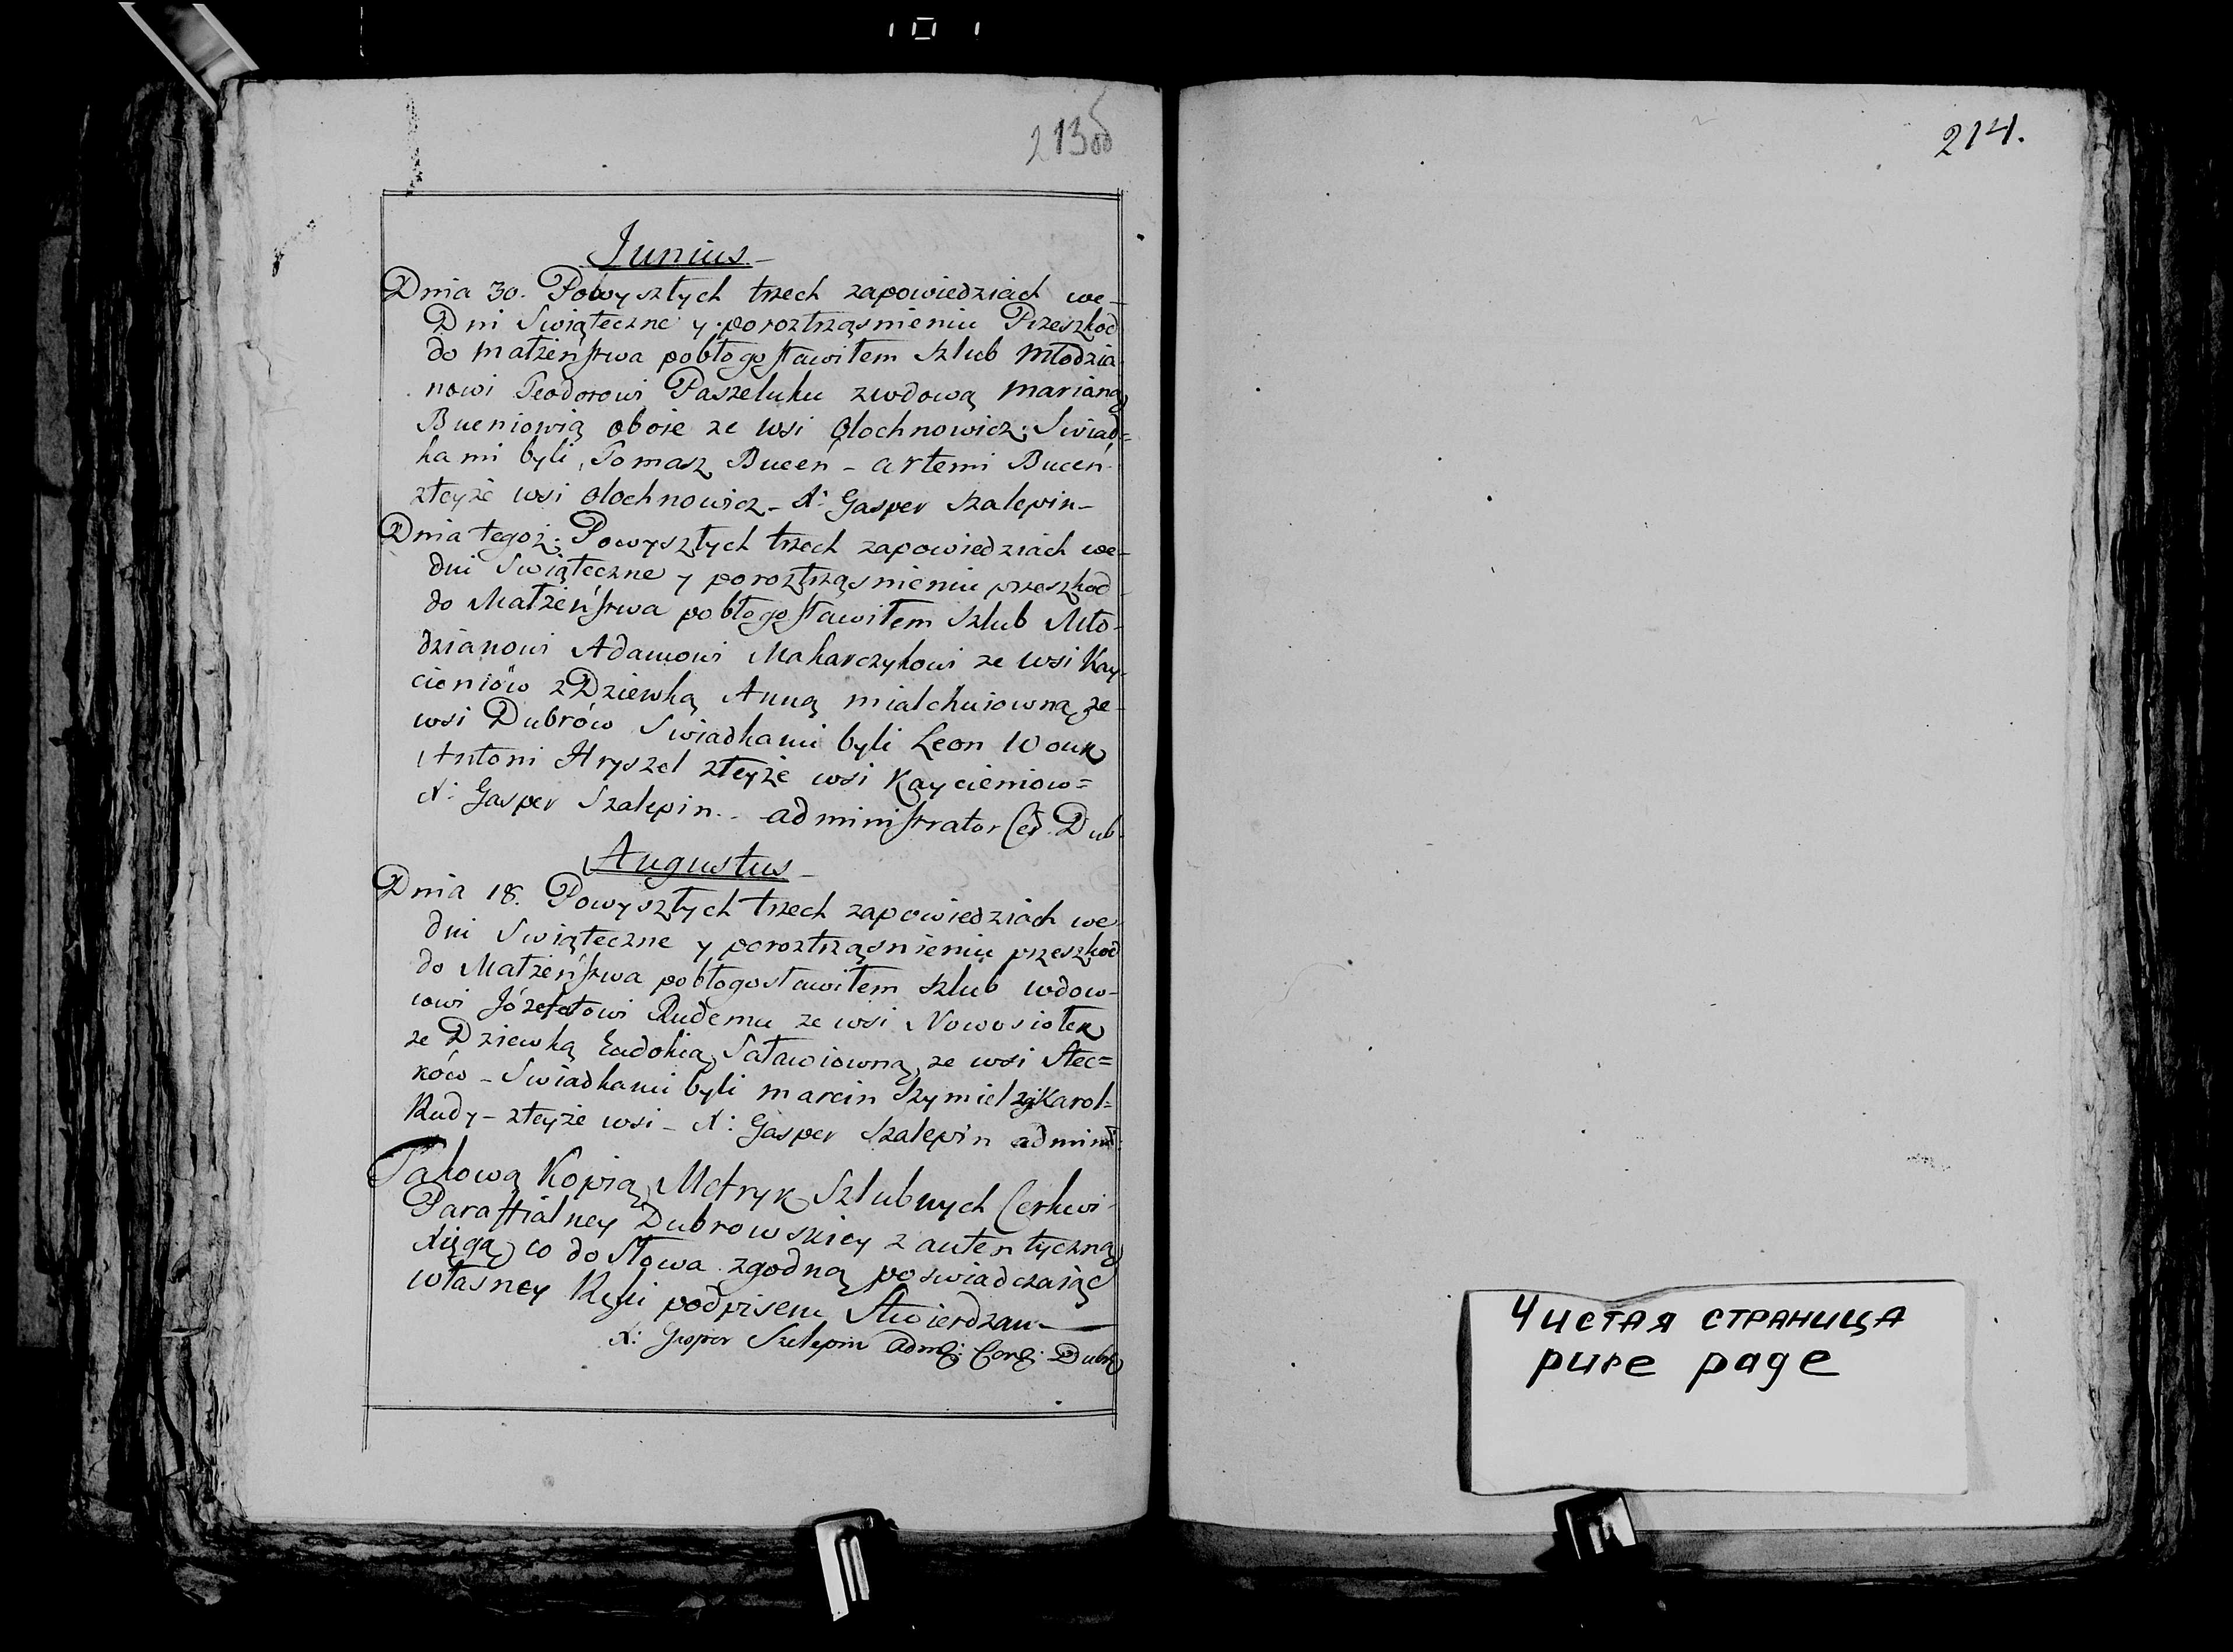 213об
Junius
Dnia 30. Powyszłych trzech zapowiedziach we-
Dni Swiąteczne y poroztrząsnieniu Przeszkod
do małzeństwa pobłogosławiłem Szlub młodzia
nowi Teodorowi Paszeluku zwdową marianą
Bueniowią oboie ze wsi Olochnowicz; Swiad=
kami byli, Tomasz Buceń - artemi Buceń
zteyże wsi olochnowicz - X: Gasper Szalepin -
Dnia tegoż: Powyszłych trzech zapowiedziach we-
dni Swiąteczne y poroztrząsnieniu przeszkod
do Małżeństwa pobłogosławiłem Szlub Mło-
dzianowi Adamowi Makarczykowi ze wsi Kay-
cieniów z Dziewką Anną mialchuiowną ze-
wsi Dubrów Swiadkami byli Leon Wouk
Antoni Hryszel zteyże wsi Kaycieniow=
X: Gasper Szalepin - administrator Cer. Dub.
Augustus
Dnia 18. Powyszłych trzech zapowiedziach we
dni Swiąteczne y poroztrząsnieniu przeszkod
do Małżeństwa pobłogosławiłem Szlub wdow-
cowi Józefatowi Rudemu ze wsi Nowosiołek
ze Dziewką Eudokią Satawiowną, ze wsi Stec=
ków - Swiadkami byli marcin Szymiel Karol=
Rudy - zteyże wsi - X: Gasper Szalepin admini:
Takową Kopią Metryk Szlubnych Cerkwi
Paraffialney Dubrowskiey z autentyczną
Xięgą co do Słowa zgodną poswiadczaiąc
własney Ręki podpisem Stwierdzam
X: Gasper Szelepin Adm: Cer: Dubr
214.
Чистая страница
pure page